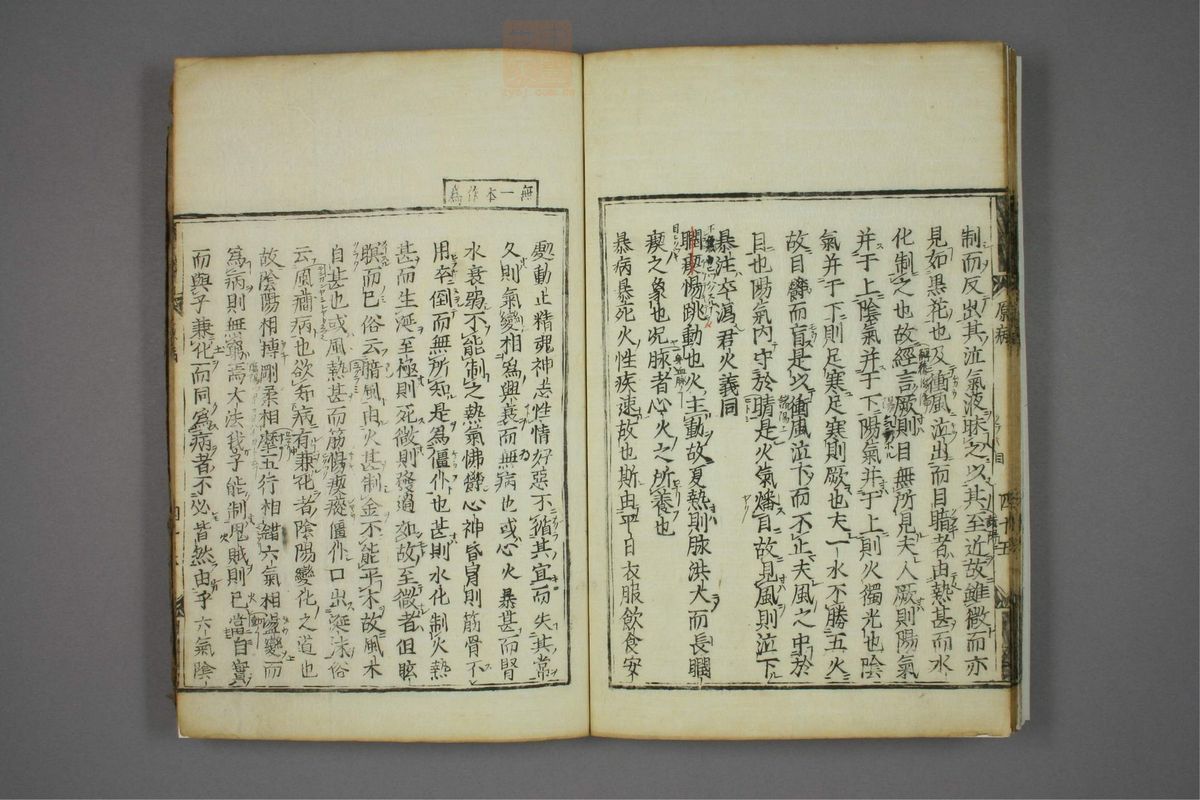 制而反出其泣氣液眛之以其至近故雖微而亦
見如黒花也及衝風泣出而目暗者由熱甚而水
化制之也故經言厥則目無所見夫人厥則陽氣
并于上陰氣并于下陽氣并于上則火獨光也陰
氣并于下則足寒足寒則厥也夫一水不勝五火
故目皆而盲是以衝風泣下而不止夫風之中於
目也陽氣內守於睛是火氣燔目故見風則泣下
暴注卒瀉君火義同
瞤瘈惕跳動也火主動故夏熱則脉洪大而長瞤
瘈之象也况脉者心火之所養也
暴病暴死火性疾速故也斯由平日衣服飲食安
原病
四十五
無一本作爲
處動止精魂神志性情好惡不循其宜而失其常
久則氣變相爲興衰而無病也或心火暴甚而腎
水衰弱不能制之熱氣怫鬱心神昏冒則筋骨不
用卒倒而無所知是爲僵仆也甚則水化制火熱
甚而生涎至極則死微則發過如故至微者但眩
瞑而已俗云暗風由火甚制金不能平木故風木
自甚也或風熱甚而筋惕瘈瘲僵仆口出涎沫俗
云風癎病也欲知病有兼化者陰陽變化之道也
故陰陽相搏剛柔相摩五行相錯六氣相盪變而
爲病則無窮焉大法我子能制鬼賊則已當自實
而與子兼化而同爲病者不必皆然由乎六氣陰